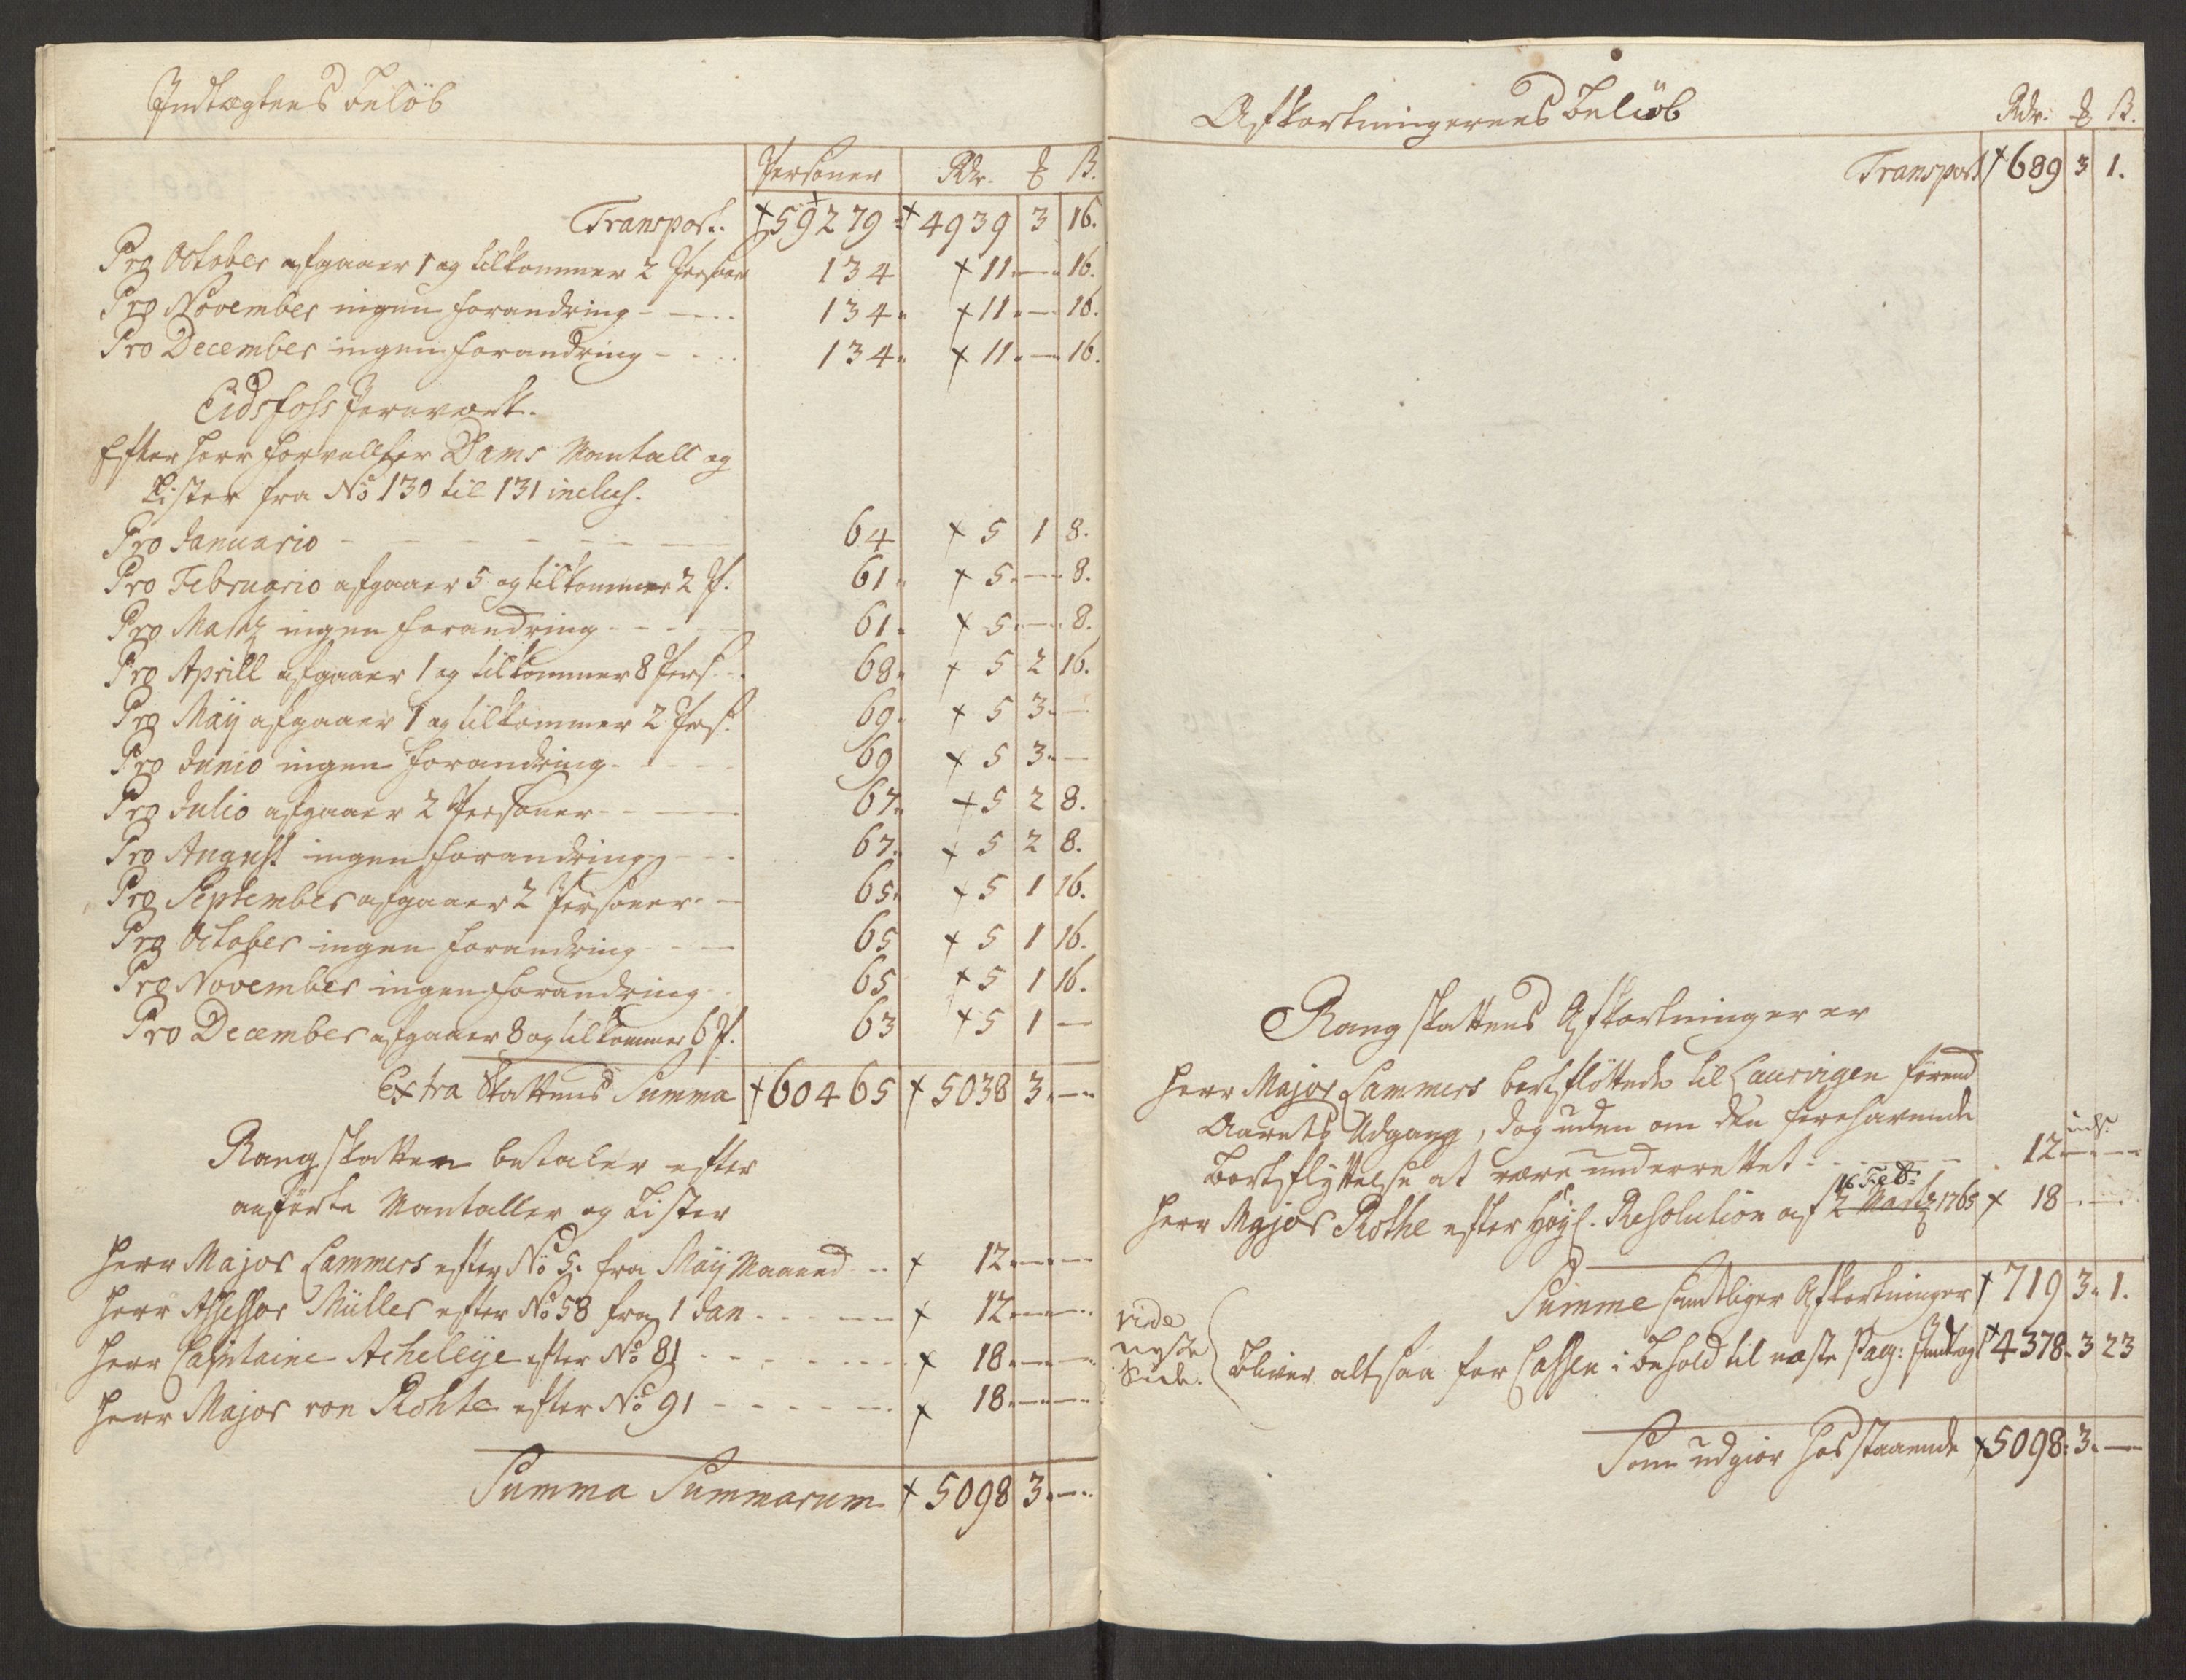 Indtægtens beløb
Personer Rdr. ℔ ß.
Transport. 59279 4939 3 16.
Pro October afgaaer 1 og tilkommer 2 Personer 134 11.— 16.
Pro November ingen forandring - - - - 134. 11.— 16.
Pro December ingen forandring - - - - 134. 11.— 16.
Eidsfoss Jernværk.
Efter Herr forvallter Dams Mantall og
Lister fra No 130 til 131 inclus.
Pro Januario - - - - - - - 64 5 1 8.
Pro Februario afgaaer 5 og tilkommer 2 P. 61. 5.— 8.
Pro Martz ingen forandring - - - - 61. 5.— 8.
Pro Aprill afgaaer 1 og tilkommer 8 Pers. 68. 5 2 16.
Pro Maÿ afgaaer 1 og tilkommer 2 Pers. 69. 5 3.—
Pro Junio ingen forandring - - - - 69 5 3.—
Pro Julio afgaaer 2 Personer - - - 67. 5 2 8.
Pro August ingen forandring - - - 67. 5 2 8.
Pro September afgaaer 2 Personer - - 65. 5 1 16.
Pro October ingen forandring - - - 65 5 1 16.
Pro November ingen forandring - - 65 5 1 16.
Pro December afgaaer 8 og tilkommer 6 P. 63 5 1 —
Extra Skattens Summa 60465 5038 3.—
Rang skatten betaler efter
anførte Mantaller og Lister
Herr Major Lammers efter No 5. fra Maÿ Maaned - - 12.— —
Herr Assessor Müller efter No 58 fra 1 Jan - - - - 12.— —
Herr Capitaine Acheleÿe efter No 81 - - - - - 18.— —
Herr Major von Rohte efter No 91 - - - - - 18.— —
Summa Summarum 5098 3.—
Afkortningernes beløb
Rdr. ℔ ß.
Transport 689 3 1.
Rang skattens Afkortninger er
Herr Major Lammers bortfløttede til Laurvigen førend
Aarets Udgang, dog uden om den forehavende
bortflyttelse at være underrettet - - - - 12.— —
16 Feb.
Herr Major Rothe efter Høyl. Resolution af 2 Martz 1765 18.—
Summe samtliger Afkortninger 719 3. 1.
vide
neste
Side.
Bliver altsaa for Cassen i behold til næste Pag: Indtægt 4378. 3 23
Som udgiør hosstaaende 5098. 3.—